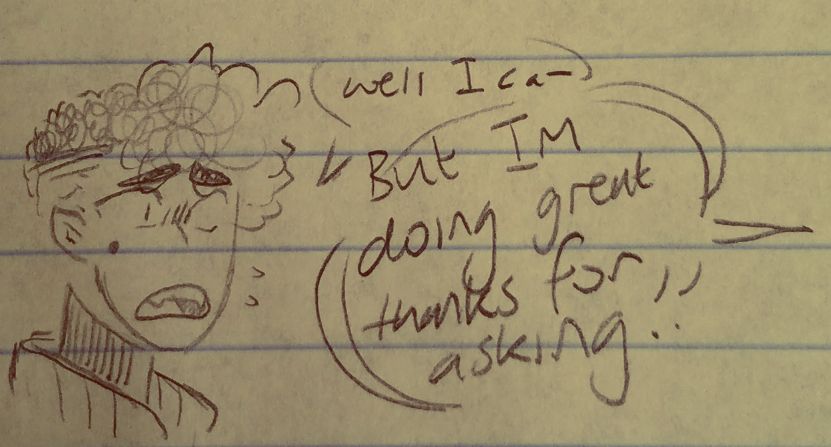 well I ca-
But IM
doing great
thanks for
asking!!